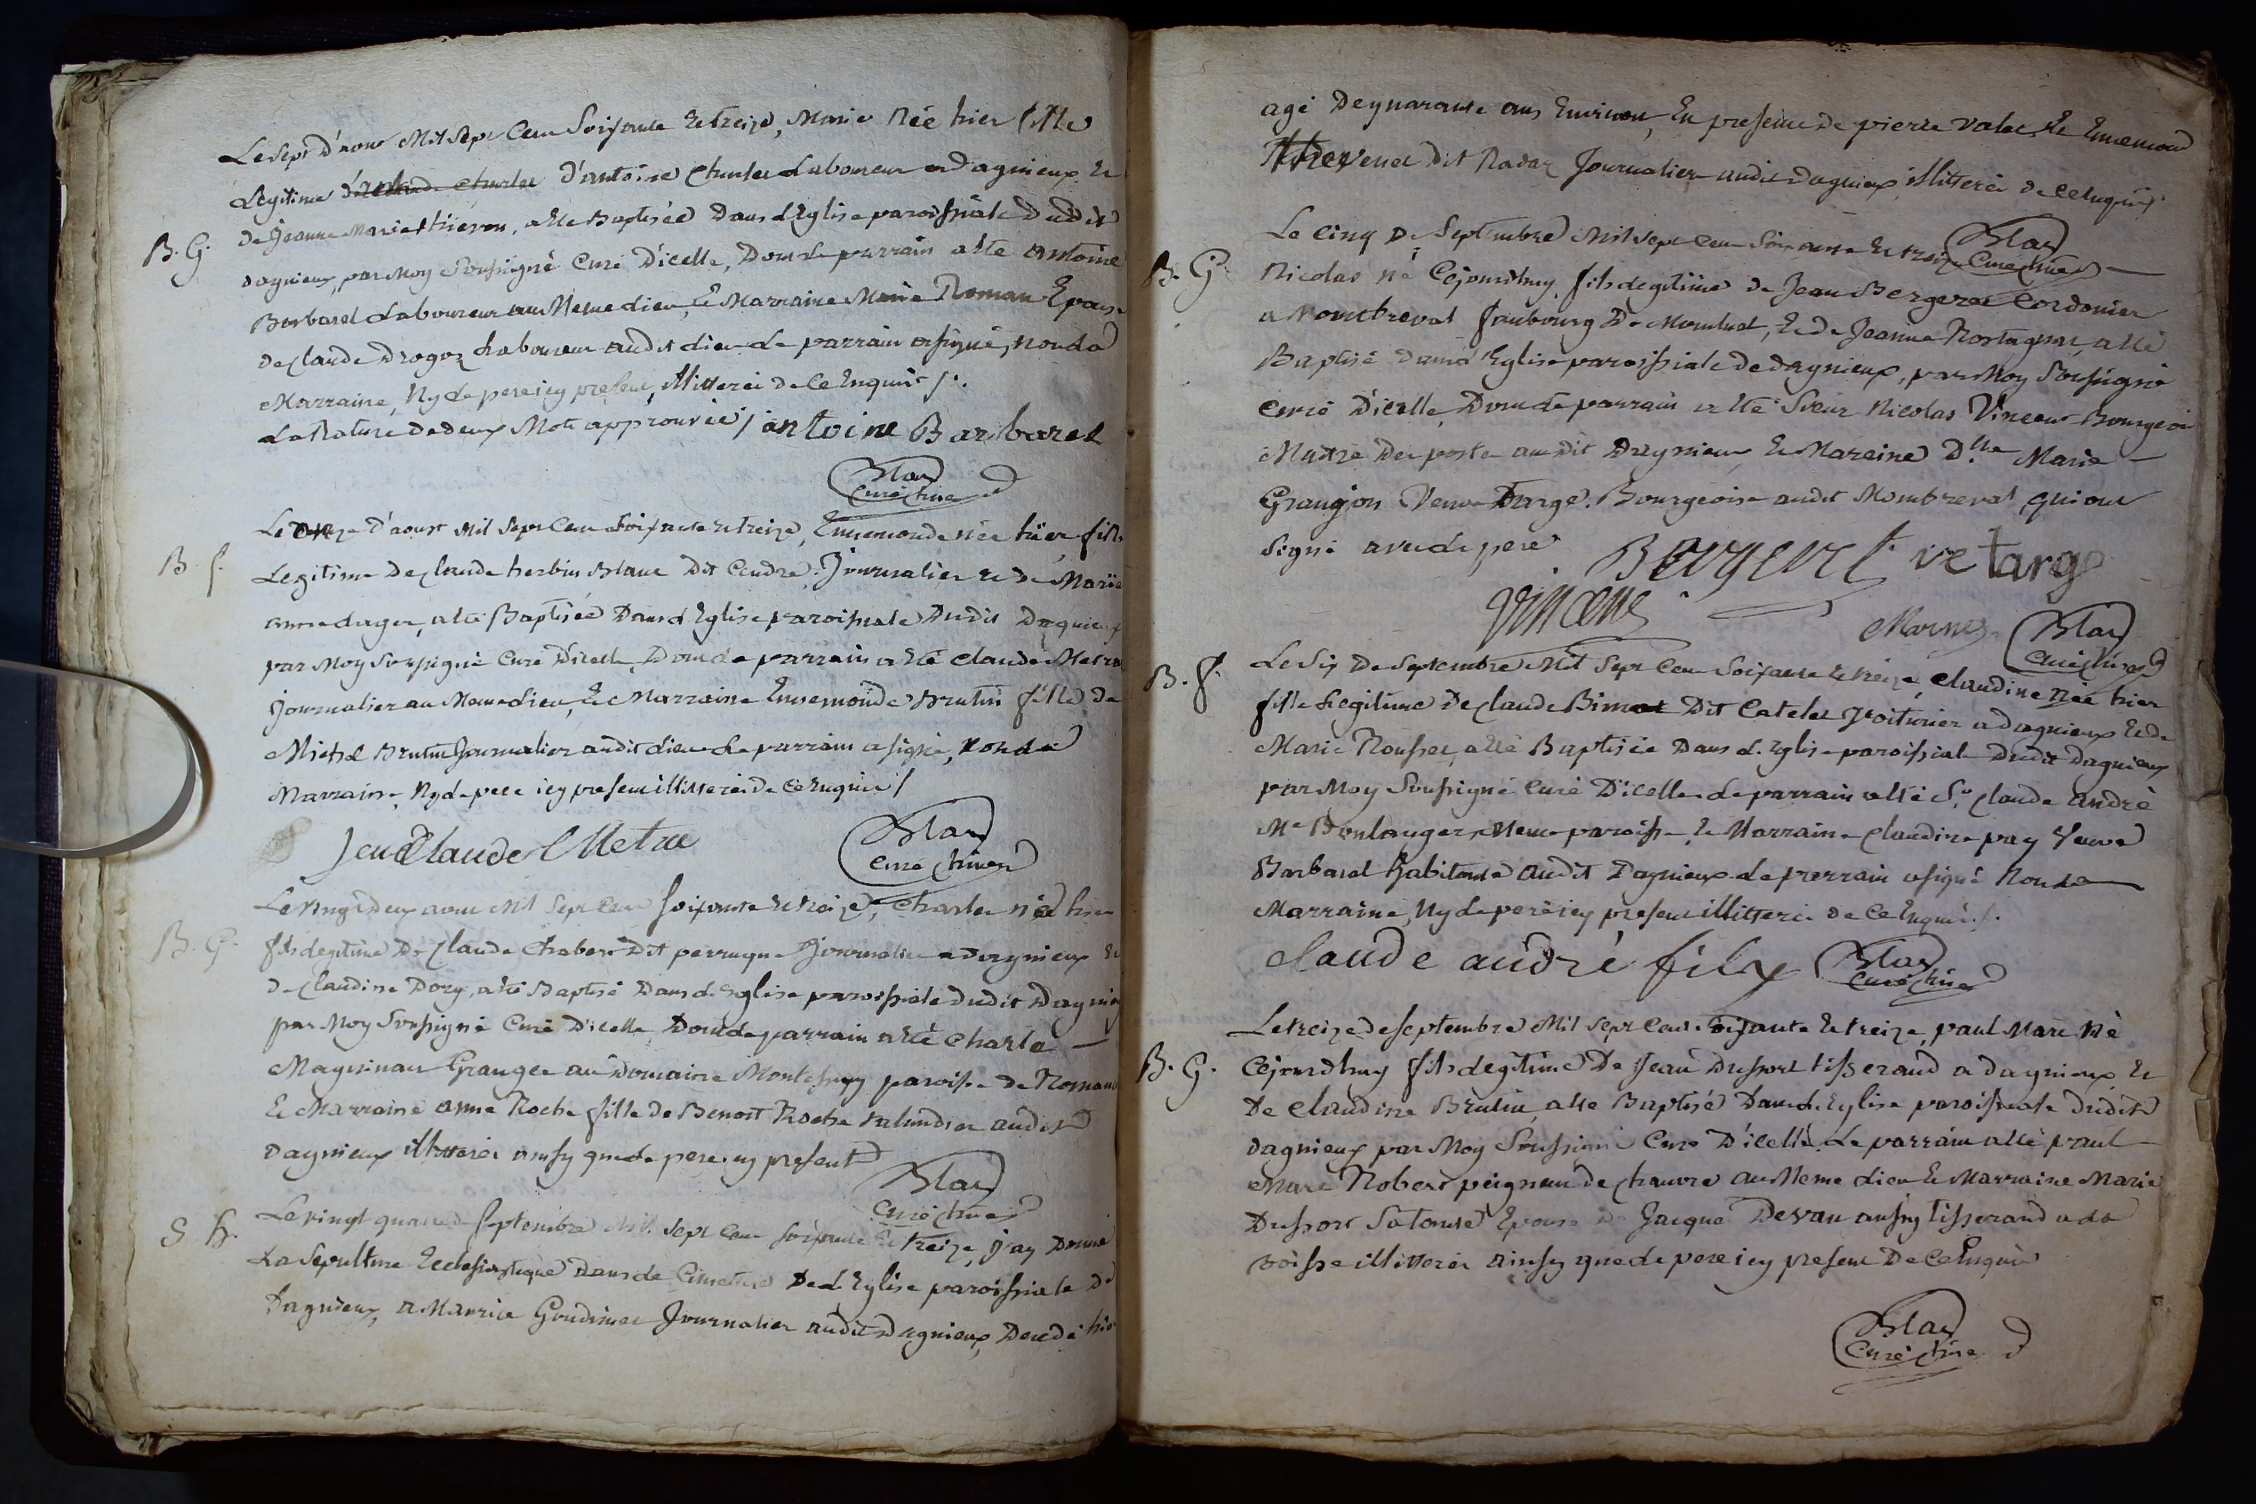 Le sept d'aout Mil Sept Cent Soixante Et treize, Marie Née hier fille
Legitime d'antoine Charles Laboureur a dagnieux Et
B. G. de Jeanne Marie thieven, a Ete Baptisée Dans L'Eglise paroissiale Dudit
dagnieux, par Moy Soussigné Curé D'icelle, Dont Le parrain a Ete antoine
Barbarel Laboureur au Meme Lieu, Et Marraine Marie Roman Epouse
de Claude Drogoz Laboureur audit Lieu Le parrain a signé, Non La
Marraine, Ny Le pere icy present, illitterés de ce Enquis /.
La Rature De deux Mots approuvée / antoine Barbarel
Blanc
Curé
Le onze d'aoust Mil Sept Cent Soixante et treize, Ennemonde née hier fille
B. f. Legitime De Claude herbin Blanc Dit Cendre, Journalier et de Marie
anne Luger, a Eté Baptisée Dans L'Eglise paroissiale Dudit Dagnieux
par Moy Soussigné Curé D'icelle, Dont Le parrain a Eté Claude Metra
Journalier au Meme Lieu, Et Marraine Ennemonde Brutin fille de
Michel Brutin Journalier audit Lieu Le parrain a signé, Non La
Marraine, Ny Le pere icy present illitterés de ce Enquis /
Jeu Claude Metra
Blanc
Curé
Le vingt Deux aout Mil Sept Cent Soixante et treize, Charles né hier
B. G. fils Legitime De Claude Chabert Dit perruque Journalier a dagnieux Et
de Claudine Dory, a Eté Baptisé Dans L'Eglise paroissiale dudit Dagnieux
par Moy Soussigné Curé D'icelle, Dont Le parrain a Eté Charle
Magninant Granger au Domaine Montessuy paroisse de Romans
Et Marraine anne Roche fille de Benoit Roche audit
Dagnieux illitterés ainsy que Le pere icy present
Blanc
Curé
S h. Le vingt quatre de Septembre Mil Sept Cent Soixante Et treize, J'ay Donné
La Sepulture Ecclesiastique Dans Le Cimetiere De L'Eglise paroissiale De
Dagnieux, a Maurice Goudimet Journalier audit Dagnieux, Decedé hier
agé De quarante ans Environ, En presence de pierre Valet, Et Ennemond
threvenet Dit Nadaz Journalier audit dagnieux, illitterés de ce Enquis
Blanc
Curé
Le Cinq De Septembre Mil sept Cent Soixante Et treize
B. G. Nicolas né Cejourdhuy, fils Legitime de Jean Bergeret Cordonier
a Montbreval faubourg De Montluel, Et de Jeanne Rostagnat, a Eté
Baptisé Dans L'Eglise paroissiale de dagnieux, par Moy Soussigné
Curé D'icelle, Dont Le parrain a Eté Sieur Nicolas Vincent Bourgeois
Maitre Des postes audit Dagnieux, Et Maraine D.lle Marie
Granjon Veuve Targe. Bourgeoise audit Montbreval qui ont
Signé avec Le pere
Bergeret ve targe
Vincent
Blanc
Curé
Le Six De Septembre Mil Sept Cent Soixante Et treize, Claudine Née hier
B. f. fille Legitime De Claude Bimet Dit Catelet Voiturier a dagnieux Et De
Marie Rousset, a Eté Baptisée Dans L'Eglise paroissiale Dudit Dagnieux
par Moy Soussigné Curé D'icelle Le parrain a Eté S.r Claude André
Me Boulanger, Meme paroisse, Et Marraine Claudine pay Veuve
Barbarel habitante audit Dagnieux Le parrain a signé Non La
Marraine, Ny Le pere icy present illitterés de ce Enquis /.
Claude andré fils
Blanc
Curé
Le treize de Septembre Mil Sept Cent Soixante Et treize, paul Marc Né
B. G. Cejourdhuy fils Legitime De Jean Dussort tisserand a dagnieux Et
De Claudine Brutin, a Ete Baptisé Dans L'Eglise paroissiale Dudit
dagnieux par Moy Soussigné Curé D'icelle. Le parrain a Eté paul
Marc Robert peigneur de chanvre au Meme Lieu Et Marraine Marie
Dussort Sa tante Epouse De Jacque Devau aussy tisserand a La
boisse illitterés ainsy que Le pere icy present De ce Enquis
Blanc
Curé